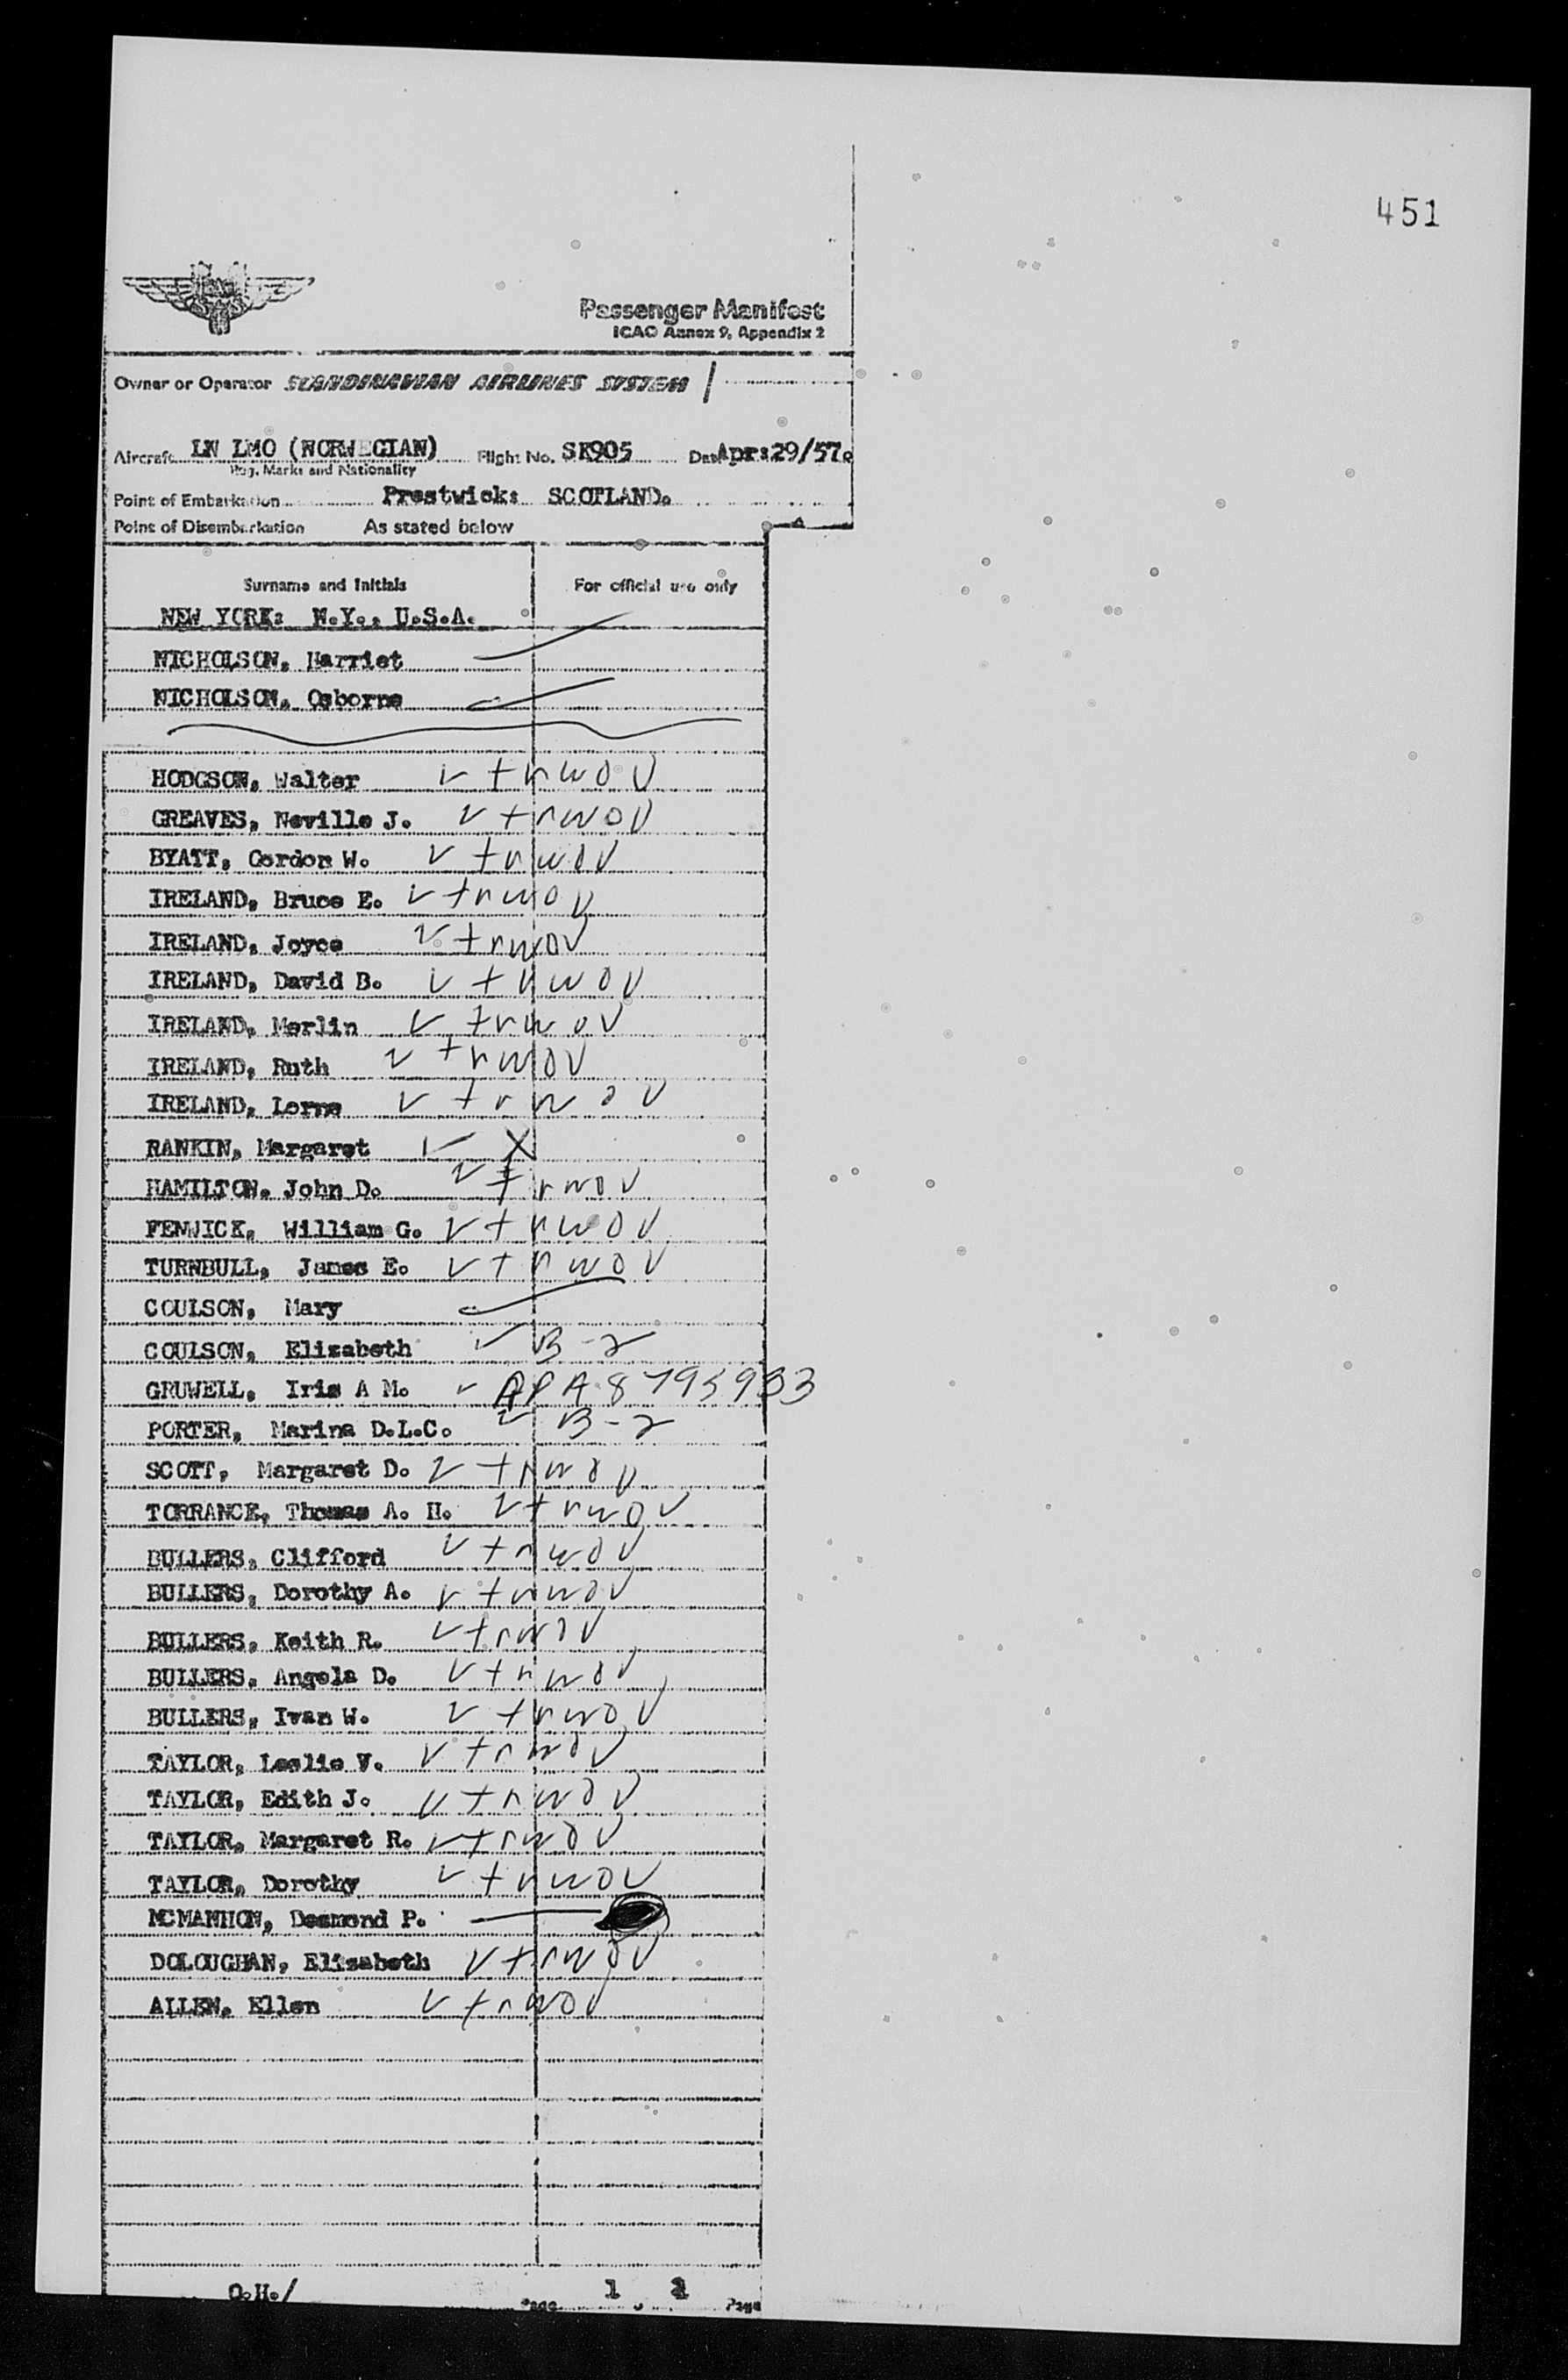 451
SAS
Passenger Manifest
ICAO Annex 9, Appendix 2
Owner or Operator SCANDINAVIAN AIRLINES SYSTEM
Aircraft LN LMO (NORWEGIAN) Flight No. SK905 Date Apr:29/57.
Reg. Marks and Nationality
Point of Embarkation Prestwick: SCOTLAND.
Point of Disembarkation As stated below
Surname and Initials For official use only
NEW YORK: N.Y., U.S.A.
NICHOLSON, Harriet
NICHOLSON, Osborne
HODGSON, Walter V + n w o V
GREAVES, Neville J. V + n w o V
BYATT, Gordon W. V + n w o V
IRELAND, Bruce E. V + n w o V
IRELAND, Joyce V + n w o V
IRELAND, David B. V + n w o V
IRELAND, Merlin V + n w o V
IRELAND, Ruth V + n w o V
IRELAND, Lorne V + n w o V
RANKIN, Margaret V X
HAMILTON, John D. V + n w o V
FENWICK, William G. V + n w o V
TURNBULL, James E. V + n w o V
COULSON, Mary
COULSON, Elizabeth B-2
GRUWELL, Iris A M. APA 8793933
PORTER, Marina D.L.C. B-2
SCOTT, Margaret D. V + n w o V
TORRANCE, Thomas A. H. V + n w o V
BULLERS, Clifford V + n w o V
BULLERS, Dorothy A. V + n w o V
BULLERS, Keith R. V + n w o V
BULLERS, Angela D. V + n w o V
BULLERS, Ivan W. V + n w o V
TAYLOR, Leslie V. V + n w o V
TAYLOR, Edith J. V + n w o V
TAYLOR, Margaret R. V + n w o V
TAYLOR, Dorothy V + n w o V
MCMANHON, Desmond P.
DOLOUGHAN, Elizabeth V + n w o V
ALLEN, Ellen V + n w o V
O.H./ Page 1 2 Page